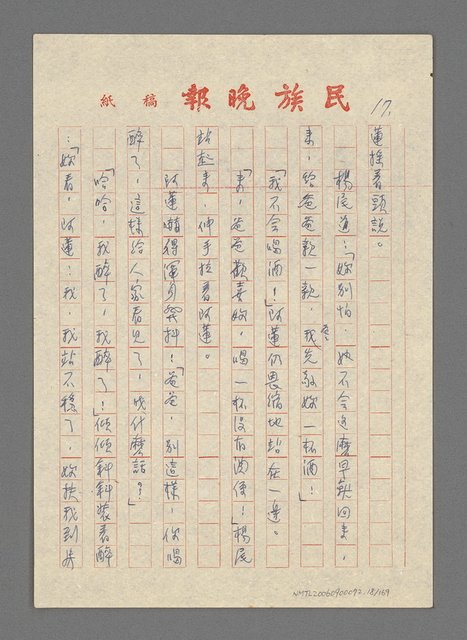 民族晚報 稿紙
17.
蓮搖着頭說。
楊展道：「妳別怕，她不會這麼早就回來，
來，給爸爸親一親，我先敬妳一杯酒！」
「我不會喝酒！」阿蓮仍畏縮地站在一邊。
「來，爸爸歡喜妳，喝一杯沒有！」楊展
站起來，伸手拉着阿蓮。
阿蓮嚇得渾身發抖！「爸爸，別這樣，你喝
醉了，這樣給人家看見了，成什麼話？」
「哈哈，我醉了，我醉了！」傾傾斜斜，裝着醉
：「妳看，阿蓮！我，我站不穩了，妳扶我到房
NMTL20060900092.18/169